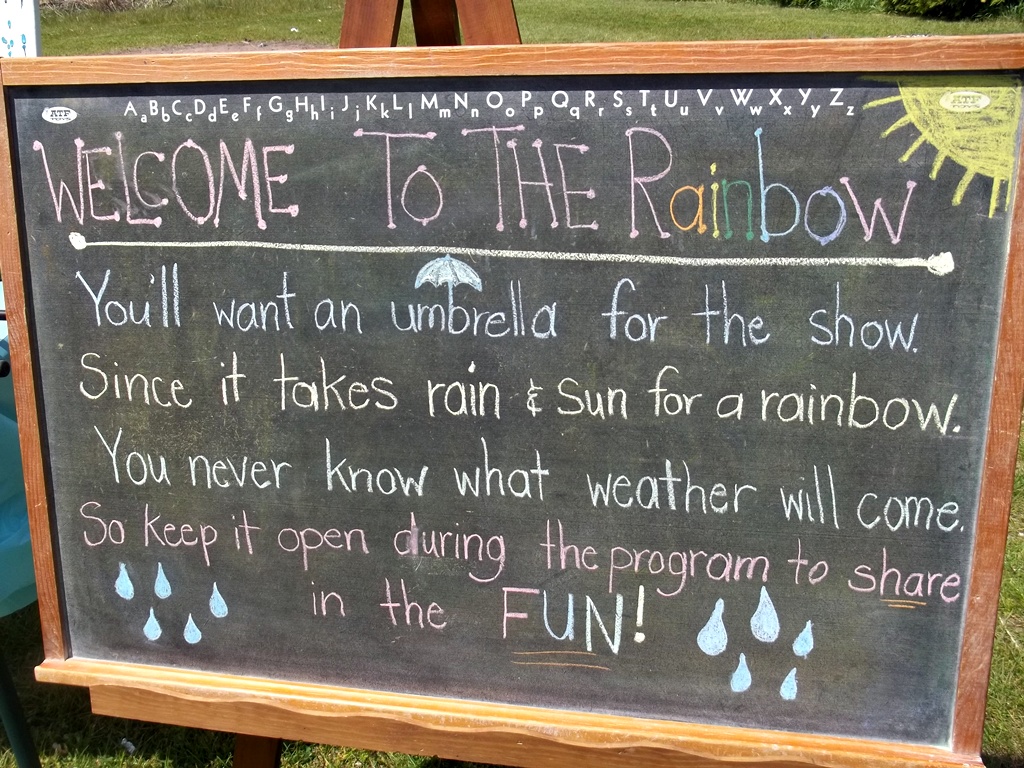 ATP
AaBbCcDdEeFfGgHhIiJjKkLlMmNnOoPpQqRrSsTtUuVvWwXxYyZz
ATP
WELCOME TO THE Rainbow
You'll want an umbrella for the show.
Since it takes rain & Sun for a rainbow.
You never know what weather will come.
So keep it open during the program to share
in the FUN!